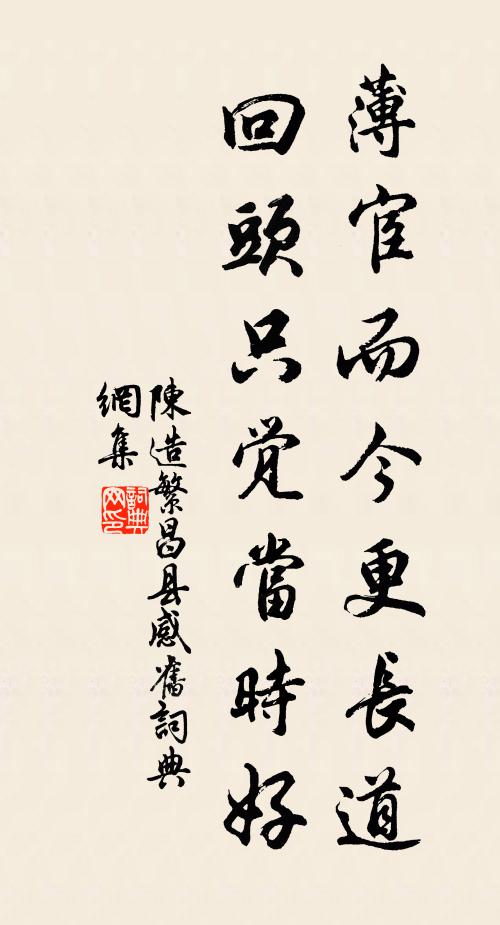 薄宦而今更長道
回頭只覚當時好
陳造繁昌县感舊詞典
網集
詞典
网印